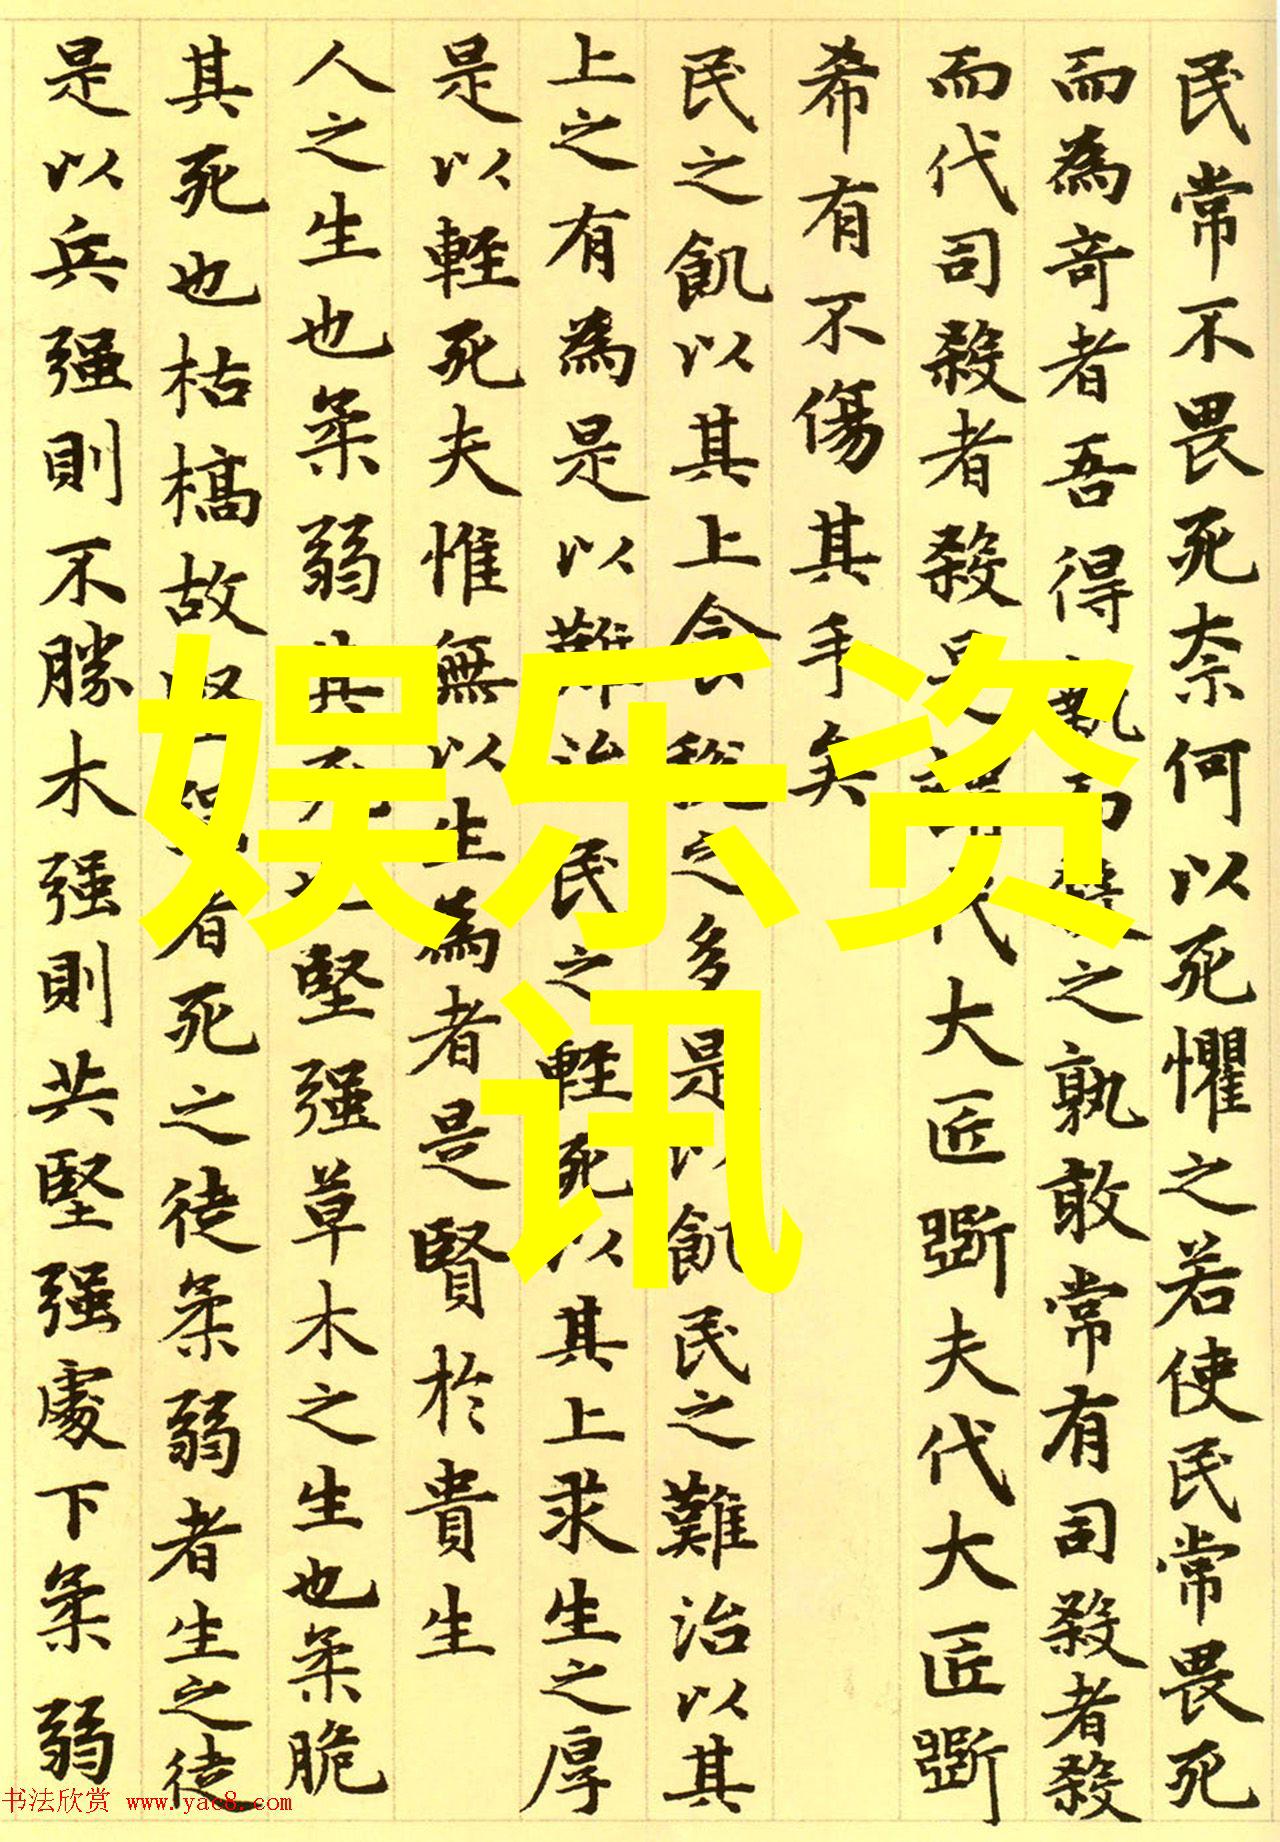 民常不畏死奈何以死懼之若使民常畏死
而為竒者吾得執而殺之孰敢常有司殺者殺
而代司殺者殺是謂代大匠斲夫代大匠斲
希有不傷其手矣
民之飢以其上食稅之多是以飢民之難治以其
上之有為是以難治民之輕死以其上求生之厚
是以輕死夫惟無以生為者是賢於貴生
人之生也柔弱其死堅强草木之生也柔脆
其死也枯槁故堅者死之徒柔弱者生之徒
是以兵强則不勝木强則共堅强處下柔弱
娱乐资
讯
书法欣赏 www.yac8.com